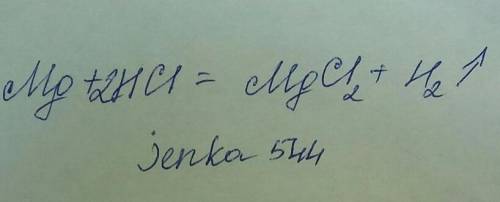 Mg + 2HCl = MgCl₂ + H₂↑
jenka 544